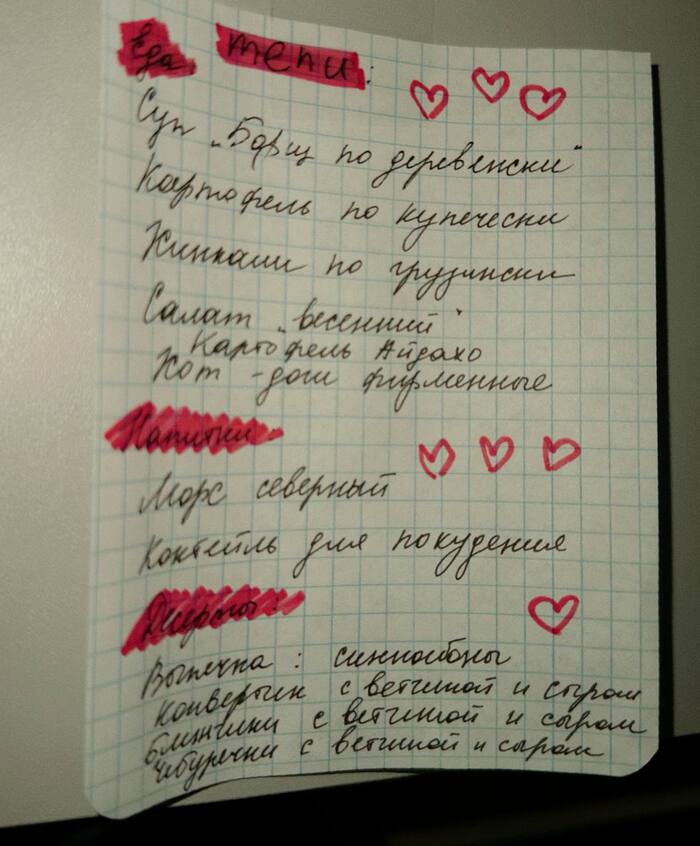 Еда. Меню:
Суп „Борщ по деревенски"
Картофель по купечески
Хинкали по грузински
Салат „весенний"
Картофель Айдахо
Хот-доги фирменные
Напитки.
Морс северный
Коктейль для похудения
Десерты:
Выпечка: синнабоны
конвертик с ветчиной и сыром
блинчики с ветчиной и сыром
чебуречки с ветчиной и сыром